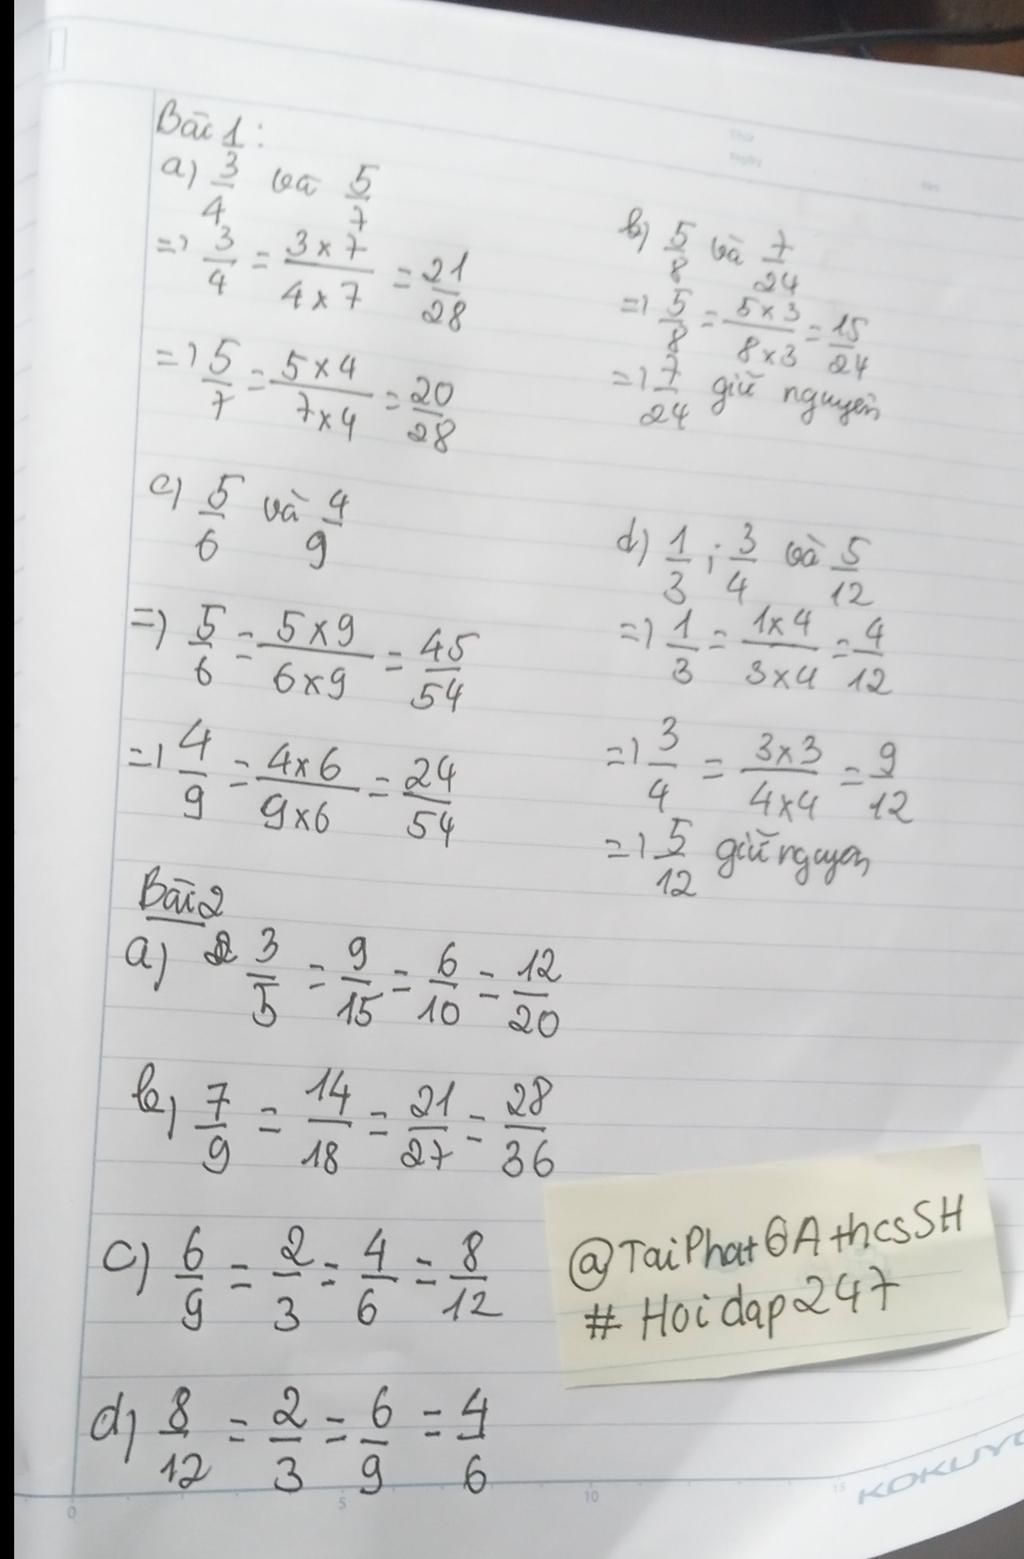 Bài 1:
a) 3/4 và 5/7
=> 3/4 = 3 x 7/4 x 7 = 21/28
=> 5/7 = 5 x 4/7 x 4 = 20/28
b) 5/8 và 7/24
=> 5/8 = 5 x 3/8 x 3 = 15/24
=> 7/24 giữ nguyên
c) 5/6 và 4/9
=> 5/6 = 5 x 9/6 x 9 = 45/54
=> 4/9 = 4 x 6/9 x 6 = 24/54
d) 1/3 ; 3/4 và 5/12
=> 1/3 = 1 x 4/3 x 4 = 4/12
=> 3/4 = 3 x 3/4 x 4 = 9/12
=> 5/12 giữ nguyên
Bài 2
a) 3/5 = 9/15 = 6/10 = 12/20
b) 7/9 = 14/18 = 21/27 = 28/36
c) 6/9 = 2/3 = 4/6 = 8/12
d) 8/12 = 2/3 = 6/9 = 4/6
@TaiPhat6AthcsSH
# Hoidap247
0 5 10 15
KOKUYO